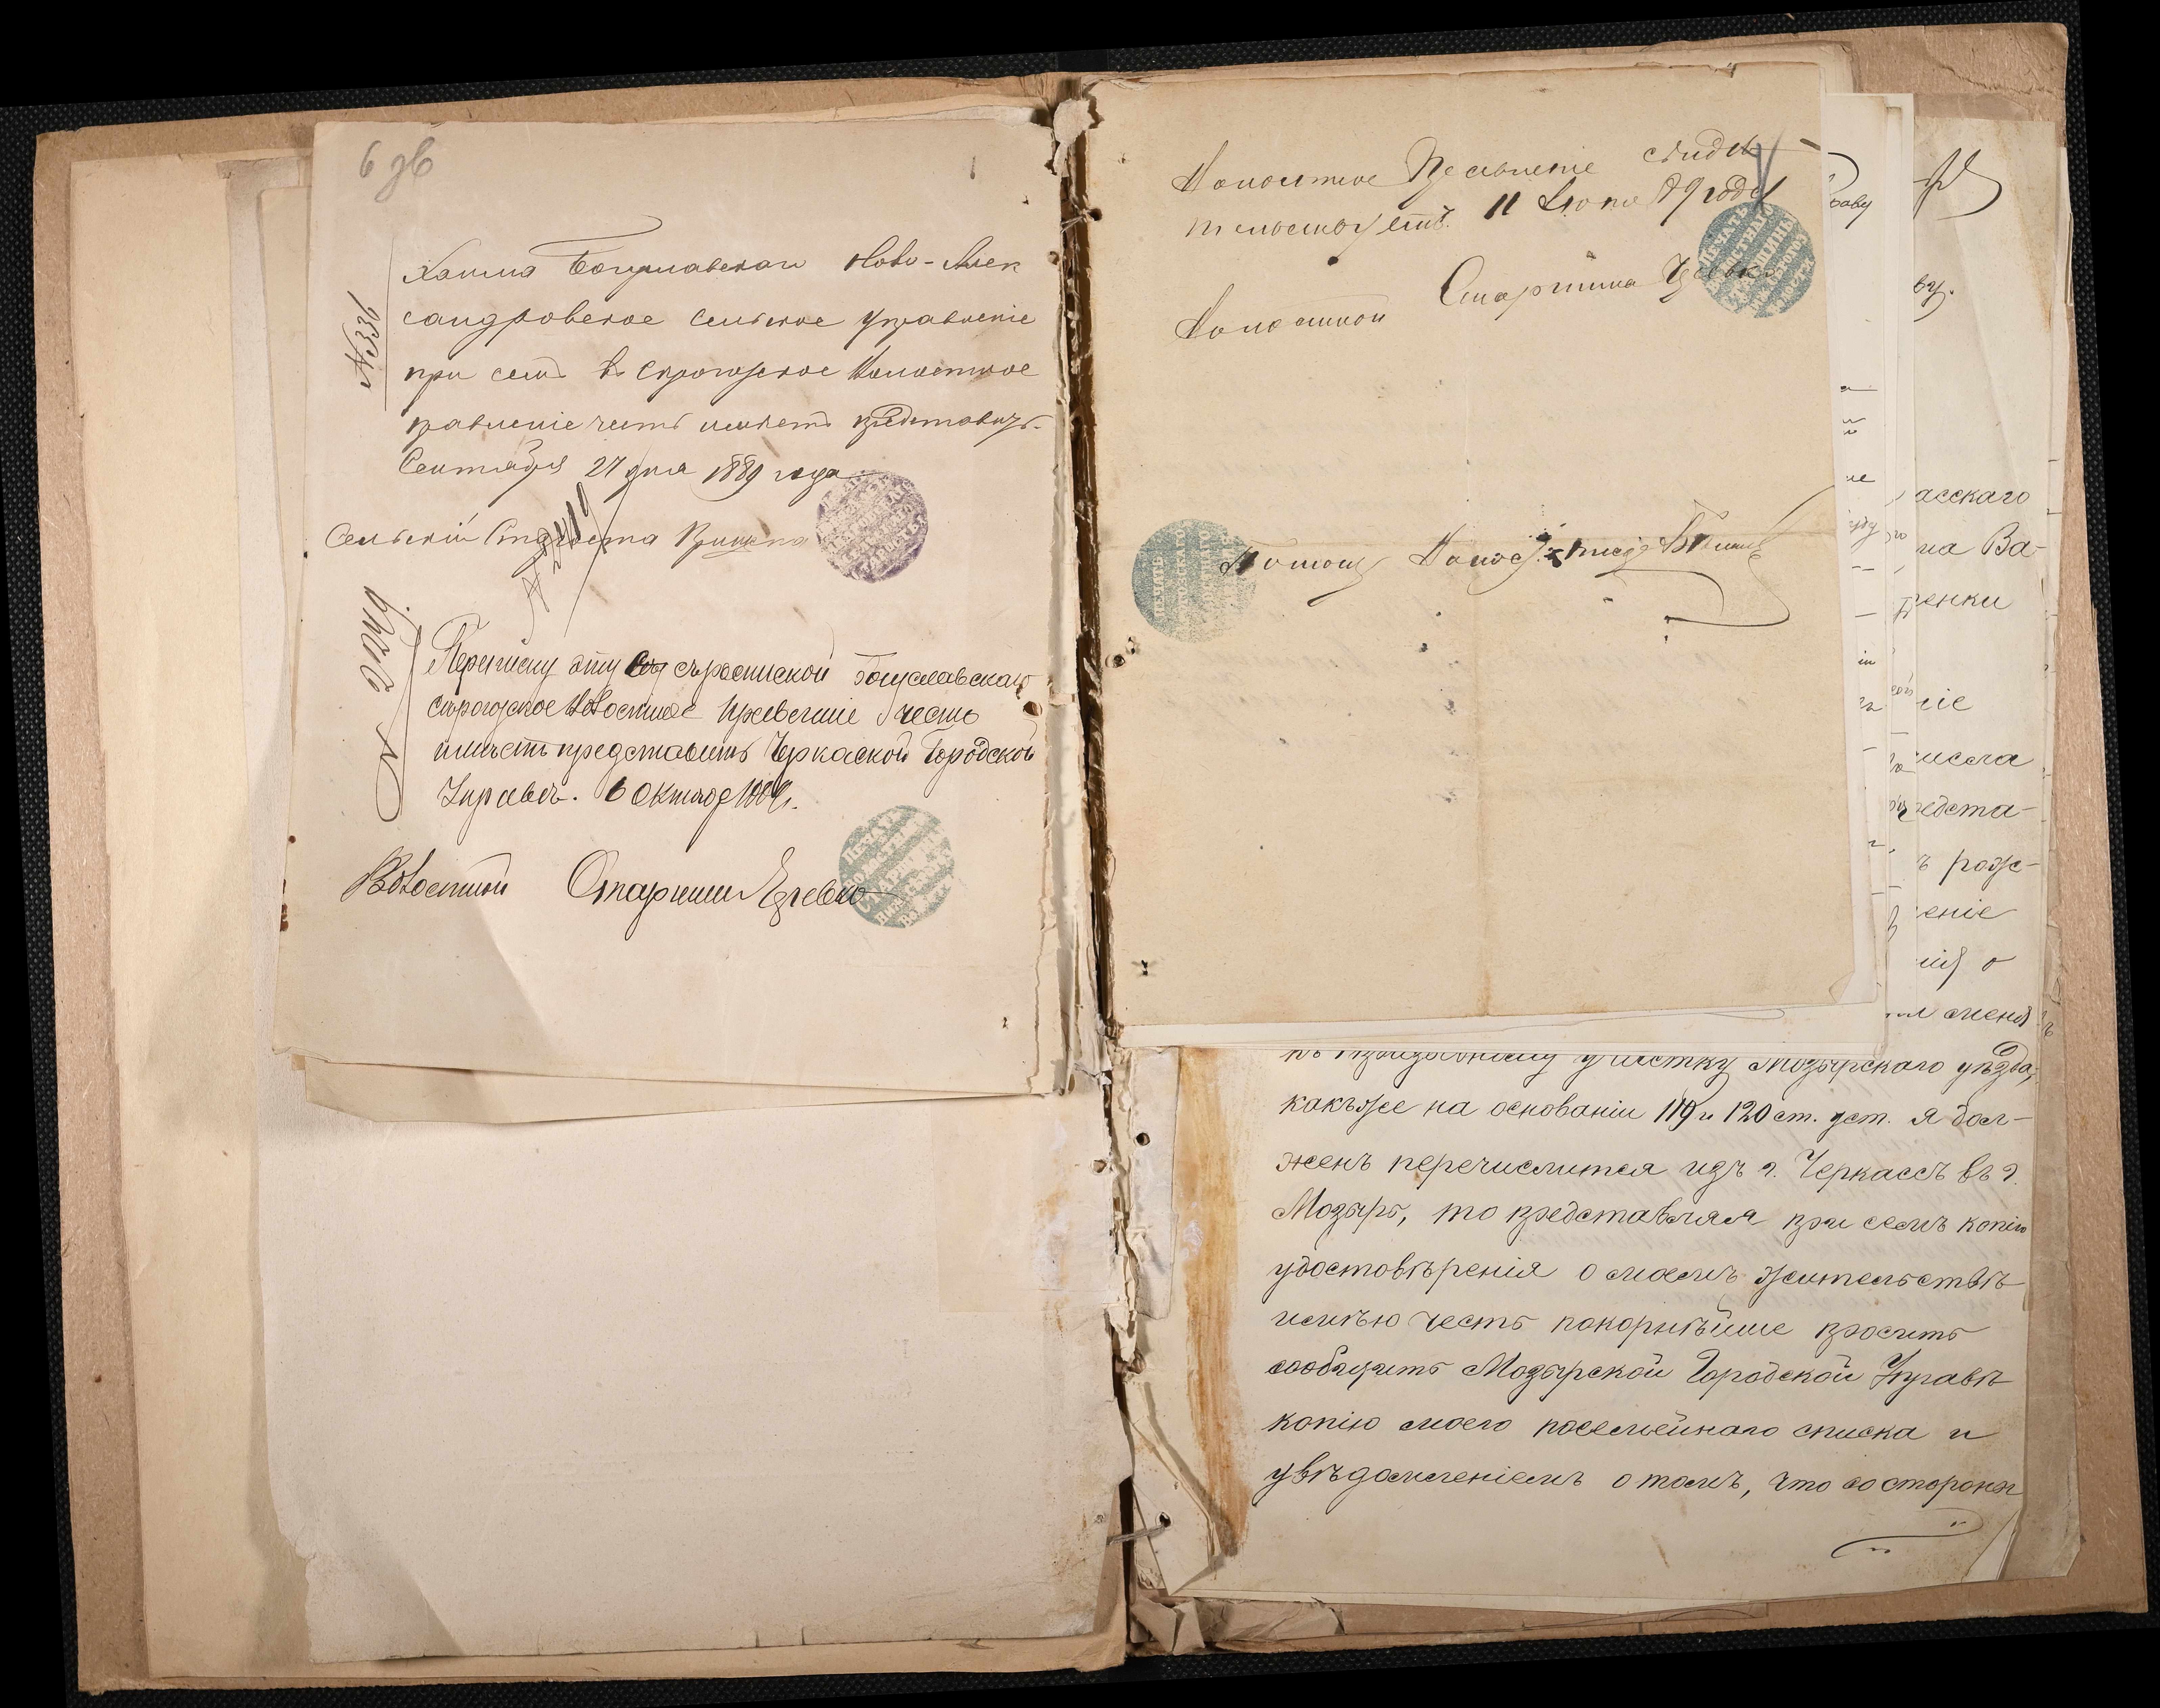 6 зв
№336
Хаима Богуславскаго Ново-Алек
сандровское Сельское управленіе
при семъ въ Сирогозское Волостное
правленіе честь имѣетъ представить.
Сентября 27 дня 1889 года
Сельскій Староста
Переписку эту съ роспиской Богуславскаго
Сирогозское Волостное Правленіе честь
имѣетъ представить Черкаской Городской
Управѣ. 6 Октября 1889 г.
Волостной Старшина
Волостное Правленіе свидѣ
тельствуетъ. 11 Іюня 89 года
Волостной Старшина
Помощ Волост. писаря
раву
ву.
асскаго
на Ва-
ренки
ніе
числа
редста-
ъ рож-
еніе
нія о
меня
къ призывному участку Мозырскаго уѣзда,
какъ же на основаніи 119 и 120 ст. уст. я дол-
женъ перечислится изъ г. Черкассъ въ г.
Мозырь, то представляя при семъ копію
удостовѣренія о моемъ жительствѣ
имѣю честь покорнѣйше просить
сообщить Мозырской Городской Управѣ
копію моего посемейнаго списка и
увѣдомленіемъ о томъ, что со стороны